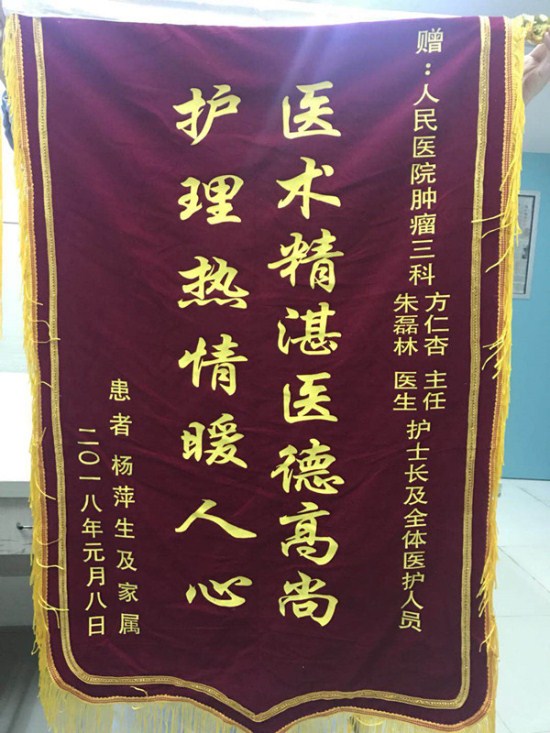 赠：人民医院肿瘤三科 方仁杏 主任 朱磊林 医生 护士长及全体医护人员
医术精湛医德高尚
护理热情暖人心
患者 杨萍生及家属
二〇一八年元月八日